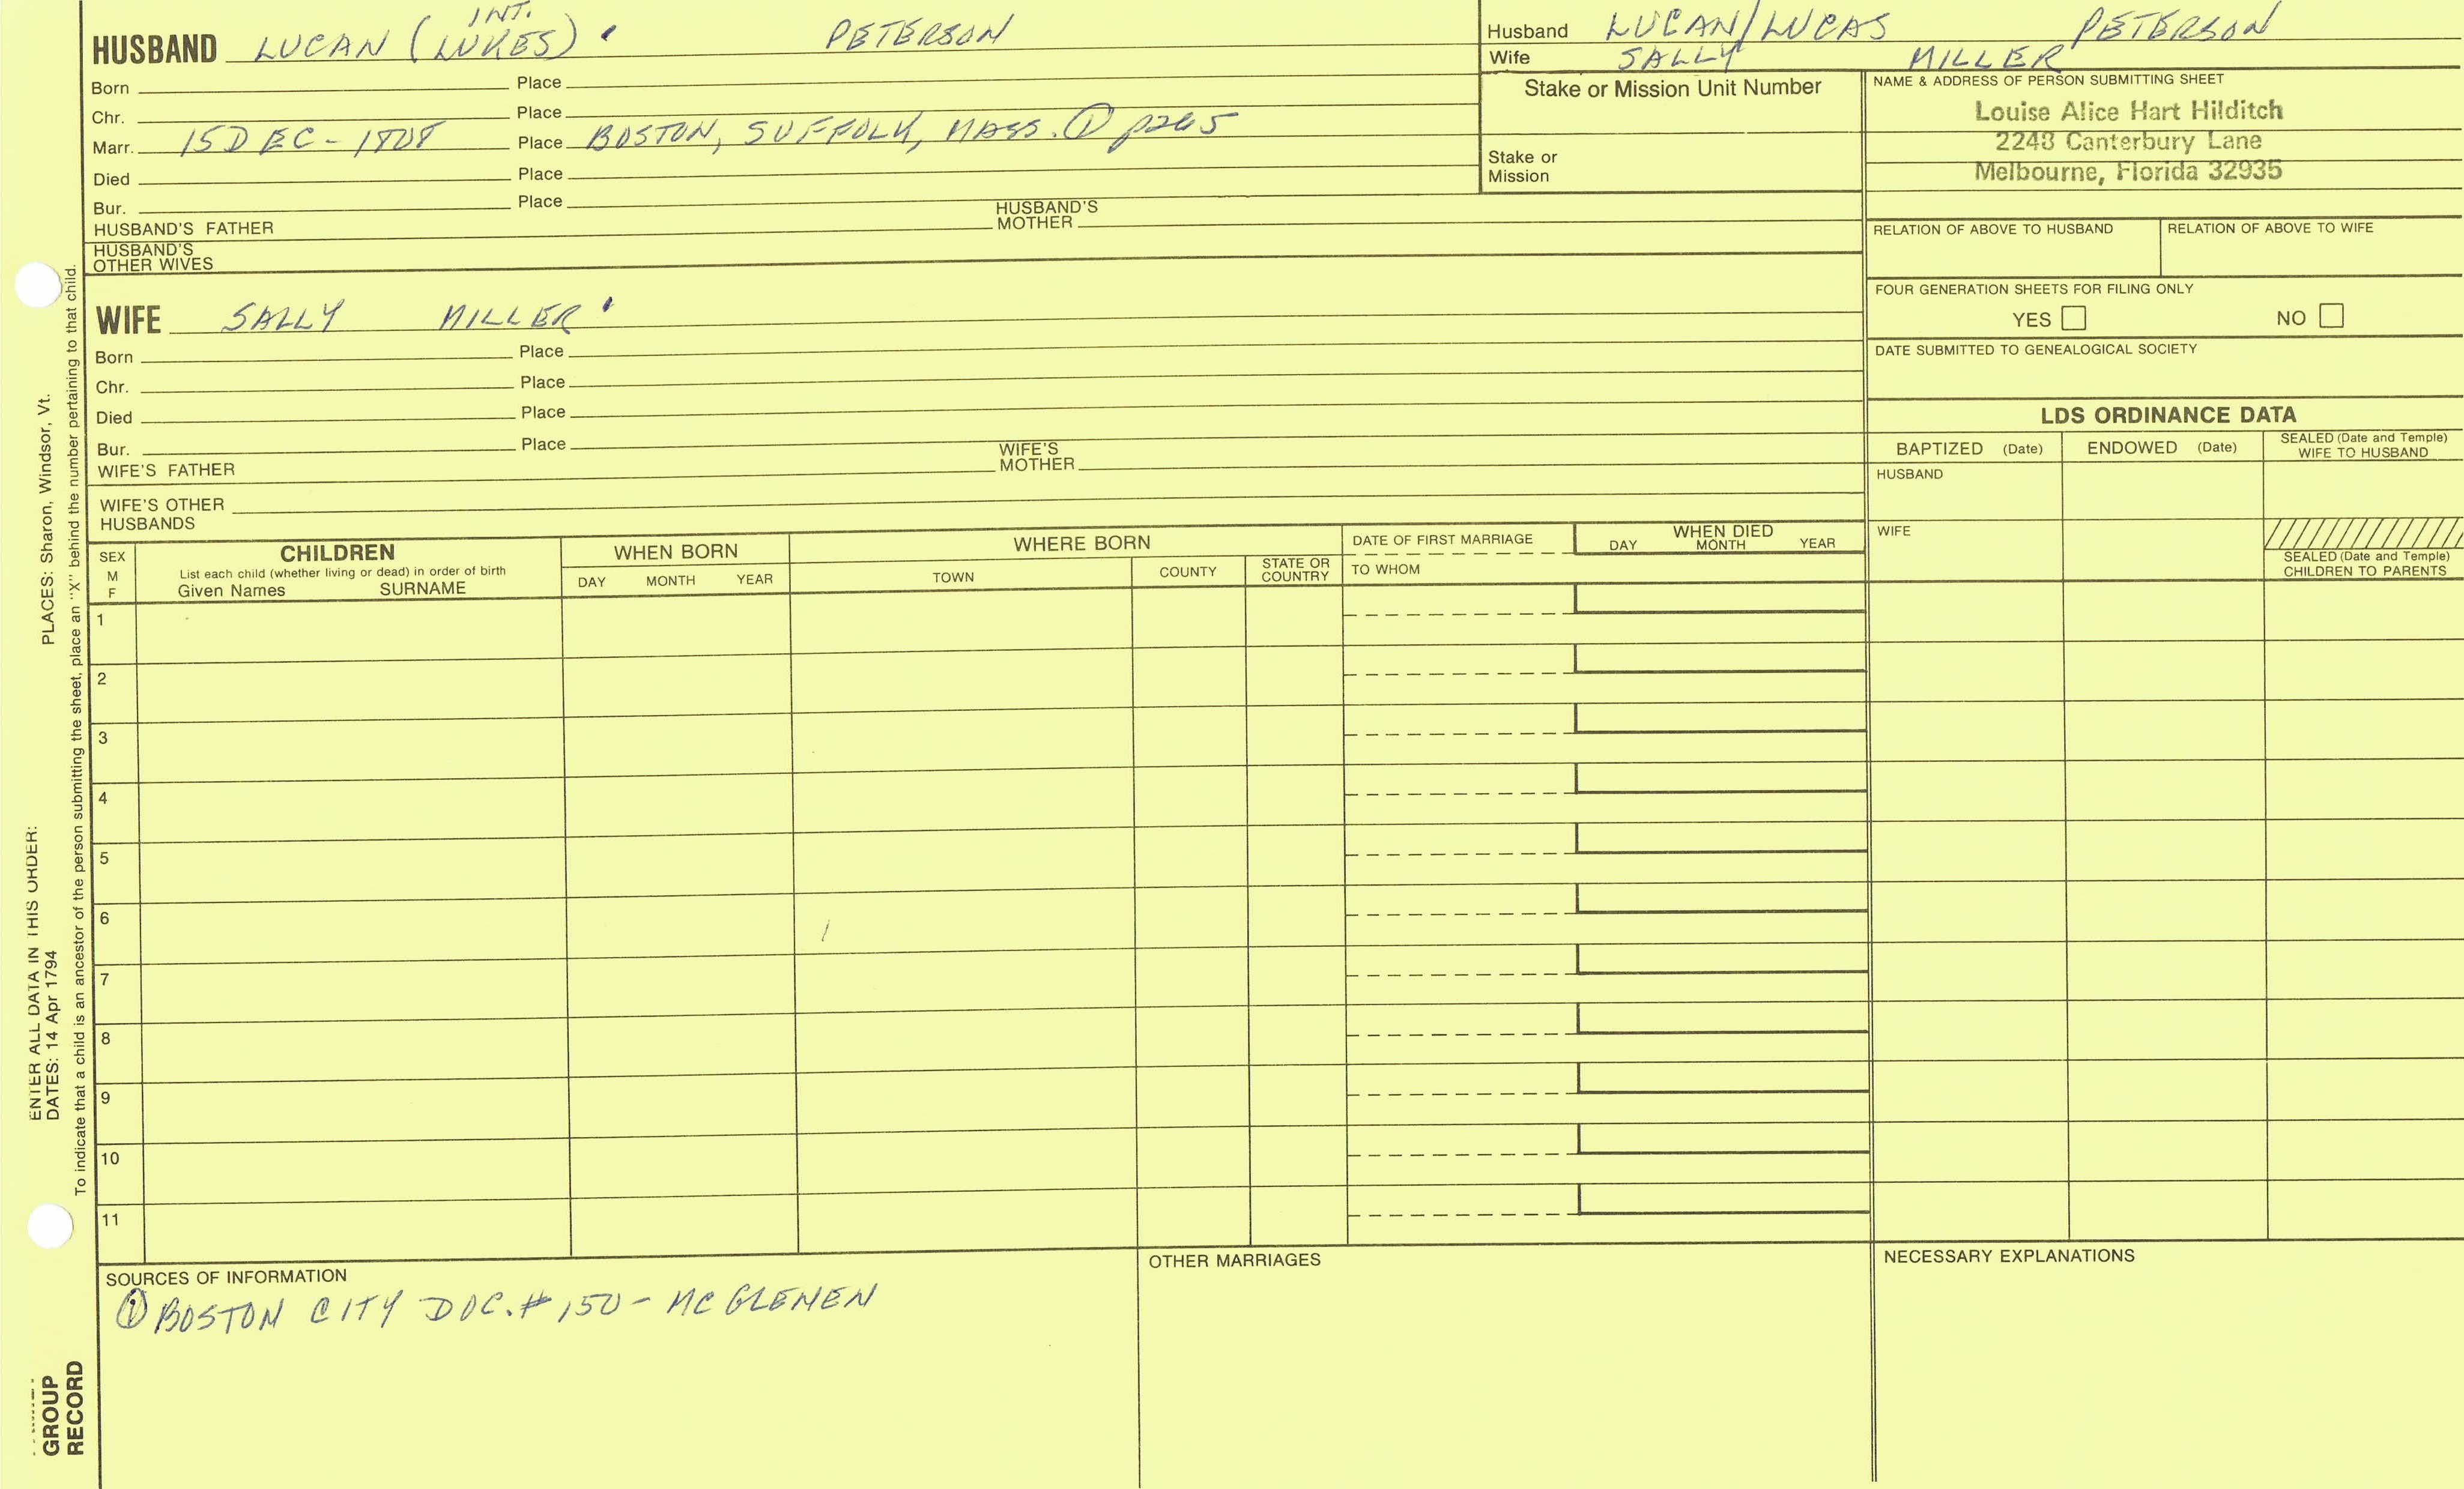 HUSBAND LUCAN (INT. LUKES) PETERSON
Born Place
Chr. Place
Marr. 15 DEC - 1808 Place BOSTON, SUFFOLK, MASS. ① p265
Died Place
Bur. Place
HUSBAND'S FATHER HUSBAND'S MOTHER
HUSBAND'S OTHER WIVES
Husband LUCAN/LUCAS PETERSON
Wife SALLY MILLER
Stake or Mission Unit Number
Stake or Mission
NAME & ADDRESS OF PERSON SUBMITTING SHEET
Louise Alice Hart Hilditch
2248 Canterbury Lane
Melbourne, Florida 32935
RELATION OF ABOVE TO HUSBAND RELATION OF ABOVE TO WIFE
FOUR GENERATION SHEETS FOR FILING ONLY
YES NO
DATE SUBMITTED TO GENEALOGICAL SOCIETY
WIFE SALLY MILLER
Born Place
Chr. Place
Died Place
Bur. Place
WIFE'S FATHER WIFE'S MOTHER
WIFE'S OTHER HUSBANDS
LDS ORDINANCE DATA
BAPTIZED (Date) ENDOWED (Date) SEALED (Date and Temple) WIFE TO HUSBAND
HUSBAND
WIFE
SEALED (Date and Temple) CHILDREN TO PARENTS
SEX M F
CHILDREN
List each child (whether living or dead) in order of birth
Given Names SURNAME
WHEN BORN
DAY MONTH YEAR
WHERE BORN
TOWN COUNTY STATE OR COUNTRY
DATE OF FIRST MARRIAGE
TO WHOM
WHEN DIED
DAY MONTH YEAR
1
2
3
4
5
6
7
8
9
10
11
SOURCES OF INFORMATION
① BOSTON CITY DOC. # 150 - MC GLENEN
OTHER MARRIAGES
NECESSARY EXPLANATIONS
ENTER ALL DATA IN THIS ORDER:
DATES: 14 Apr 1794
PLACES: Sharon, Windsor, Vt.
To indicate that a child is an ancestor of the person submitting the sheet, place an "X" behind the number pertaining to that child.
GROUP
RECORD